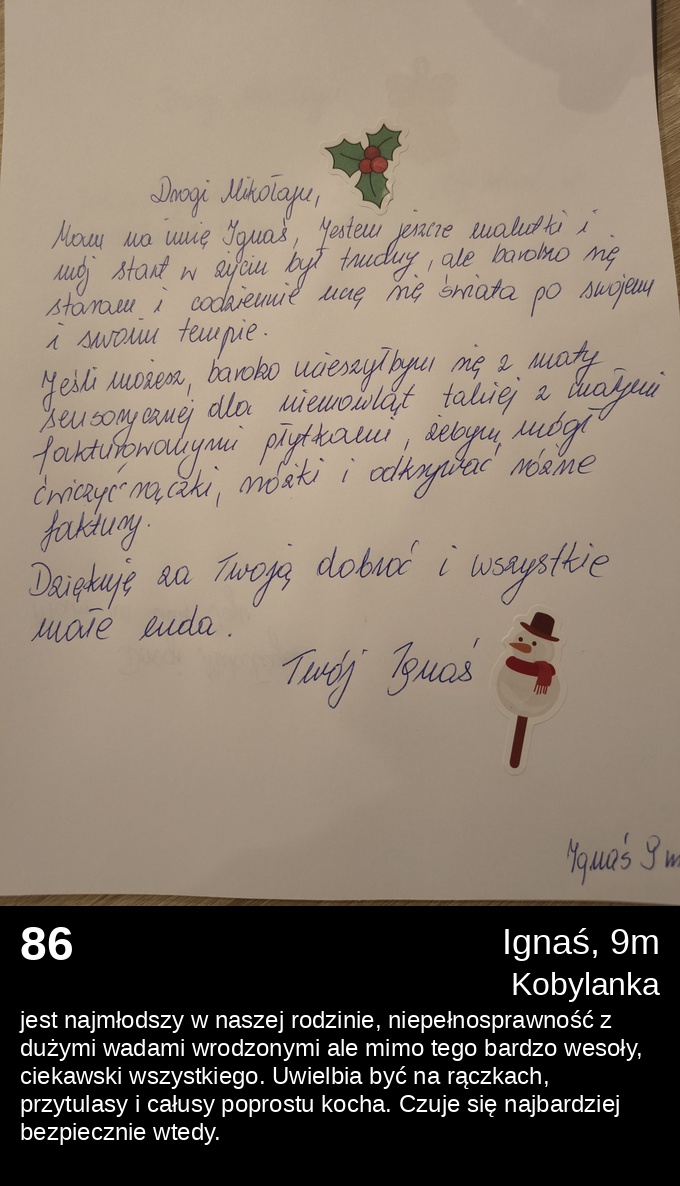 Drogi Mikołaju,
Mam na imię Ignaś, Jestem jeszcze malutki i
mój start w życiu był trudny, ale bardzo się
staram i codziennie uczę się świata po swojemu
i swoim tempie.
Jeśli możesz, bardzo ucieszyłbym się z maty
sensorycznej dla niemowląt takiej z małymi
fakturowanymi płytkami, żebym mógł
ćwiczyć rączki, nóżki i odkrywać różne
faktury.
Dziękuję za Twoją dobroć i wszystkie
małe cuda.
Twój Ignaś
Ignaś 9 m
86
Ignaś, 9m
Kobylanka
jest najmłodszy w naszej rodzinie, niepełnosprawność z
dużymi wadami wrodzonymi ale mimo tego bardzo wesoły,
ciekawski wszystkiego. Uwielbia być na rączkach,
przytulasy i całusy poprostu kocha. Czuje się najbardziej
bezpiecznie wtedy.